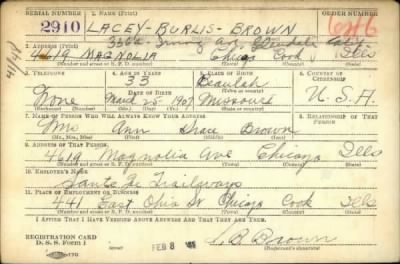 SERIAL NUMBER
1. NAME (Print)
ORDER NUMBER
2910
LACEY - BURLIS - BROWN
(First) (Middle) (Last)
2. ADDRESS (Print)
4619 MAGNOLIA Chicago Cook Ills
(Number and street or R. F. D. number) (Town) (County) (State)
3. TELEPHONE
4. AGE IN YEARS
5. PLACE OF BIRTH
6. COUNTRY OF CITIZENSHIP
33
Beulah
None
DATE OF BIRTH
March 25 1907
Missouri
U.S.A.
(Exchange) (Number)
(Mo.) (Day) (Yr.)
(State or country)
7. NAME OF PERSON WHO WILL ALWAYS KNOW YOUR ADDRESS
8. RELATIONSHIP OF THAT PERSON
Mrs Ann Brown
(Mr., Mrs., Miss) (First) (Middle) (Last)
9. ADDRESS OF THAT PERSON
4619 Magnolia Ave Chicago Ills
(Number and street or R. F. D. number) (Town) (County) (State)
10. EMPLOYER'S NAME
Sante Fe Trailways
11. PLACE OF EMPLOYMENT OR BUSINESS
441 East Ohio St Chicago Cook Ills
(Number and street or R. F. D. number) (Town) (County) (State)
I AFFIRM THAT I HAVE VERIFIED ABOVE ANSWERS AND THAT THEY ARE TRUE.
REGISTRATION CARD
D. S. S. Form 1
FEB 8
L. B. Brown
(Registrant's signature)